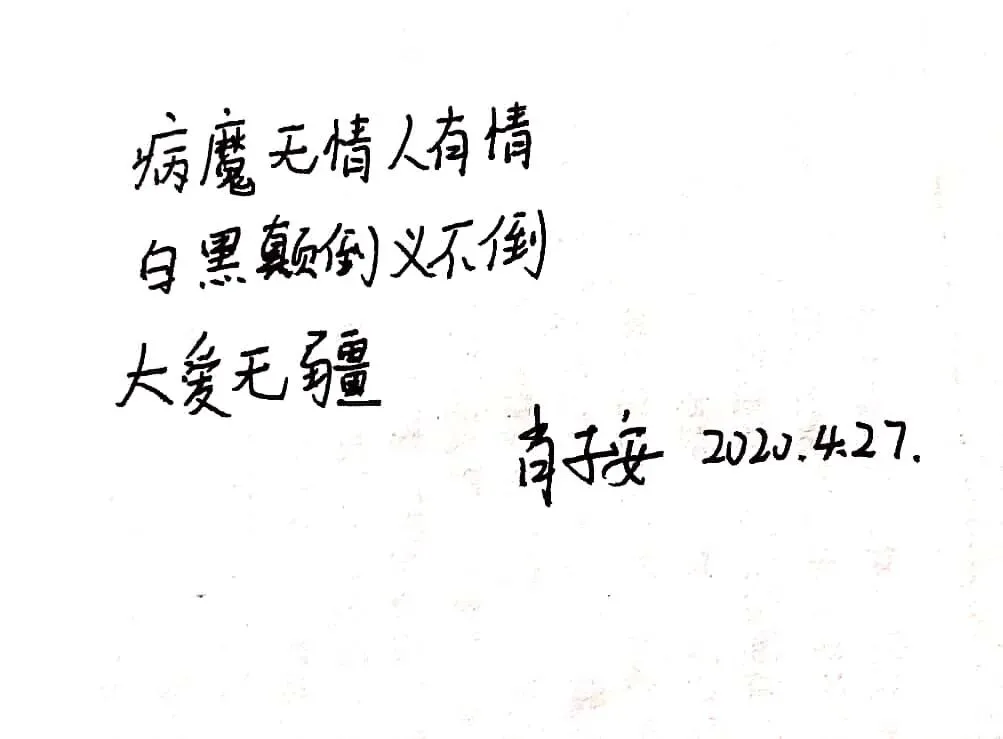 病魔无情人有情
白黑颠倒义不倒
大爱无疆
肖 2020.4.27.